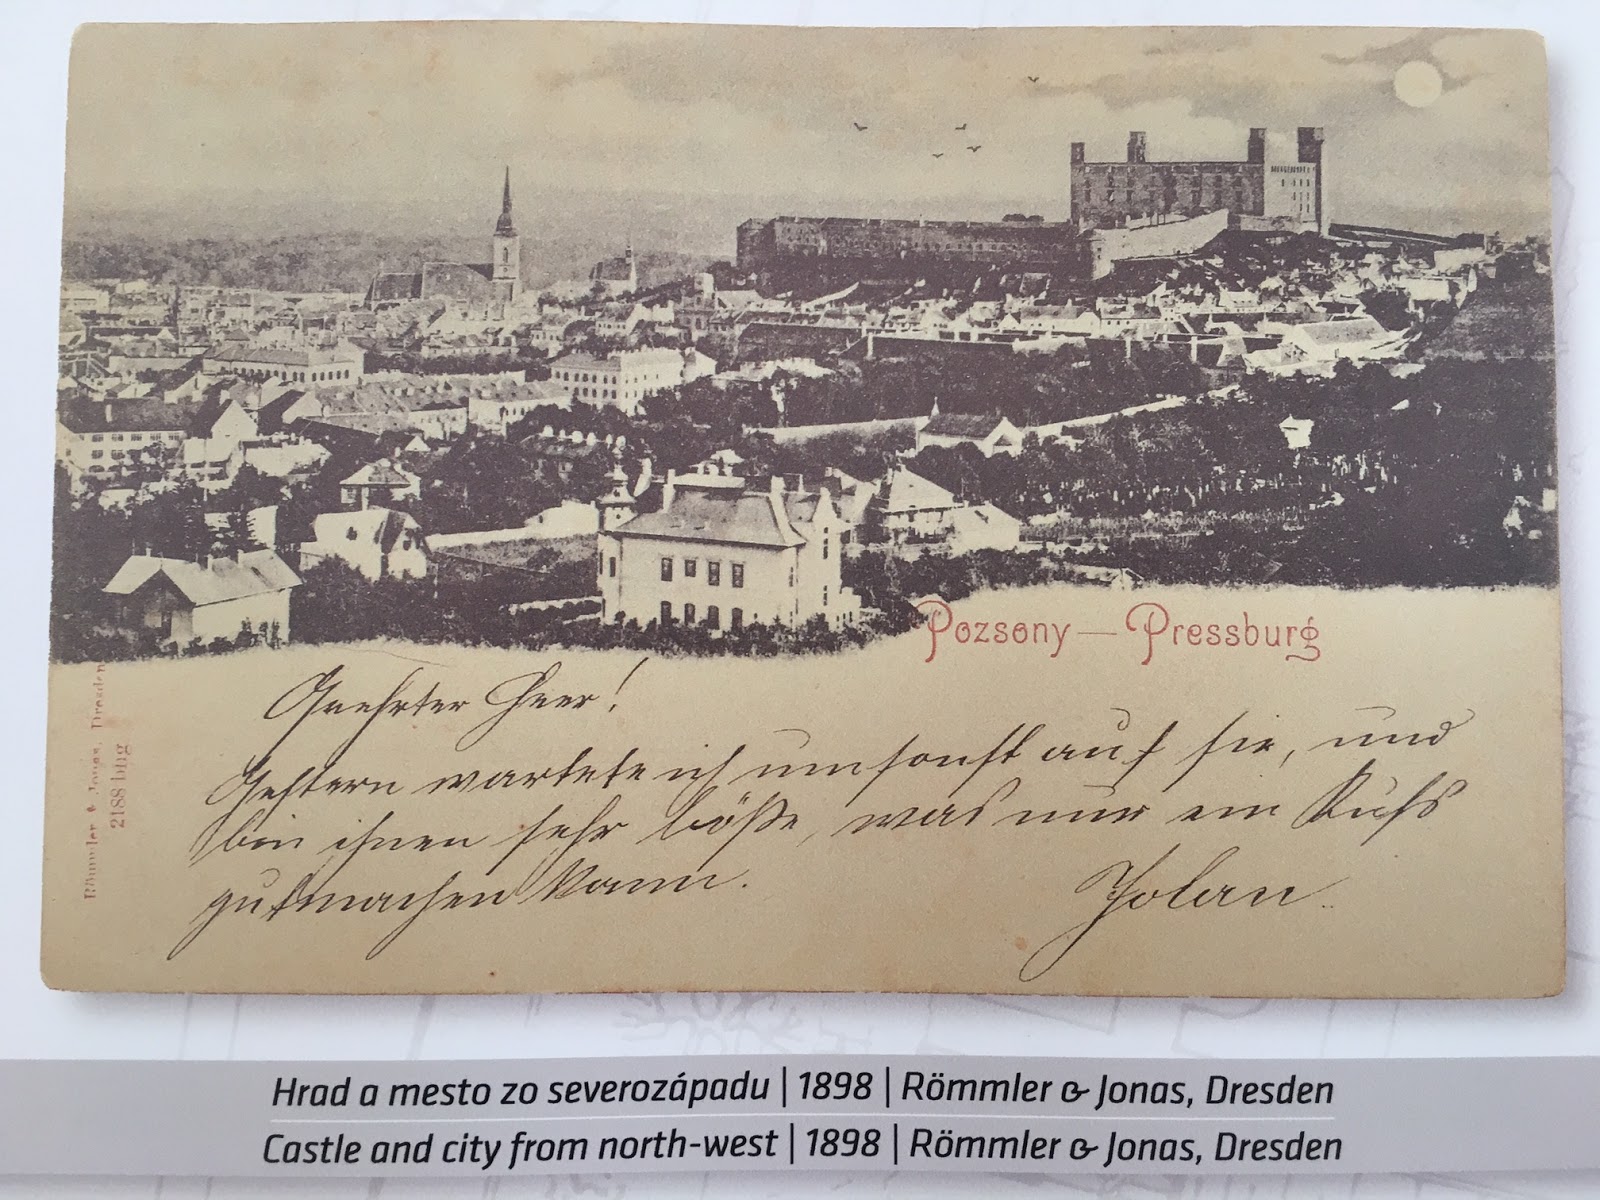 Pozsony — Pressburg
Römmler & Jonas, Dresden
2188 bhg
Geehrter Herr!
Gestern wartete ich umsonst auf sie, und
bin ihnen sehr böße, was nur ein Kuß
gutmachen kann.
Jolan
Hrad a mesto zo severozápadu | 1898 | Römmler & Jonas, Dresden
Castle and city from north-west | 1898 | Römmler & Jonas, Dresden